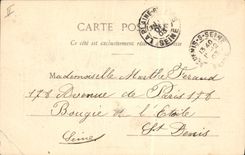 CARTE POSTALE
Ce côté est exclusivement réservé
LA PLAINE-S
SEINE
NIS-S-SEINE
Mademoiselle Marthe Feraud
178 Avenue de Paris 178
Bougie l'Etoile
St Denis
Seine